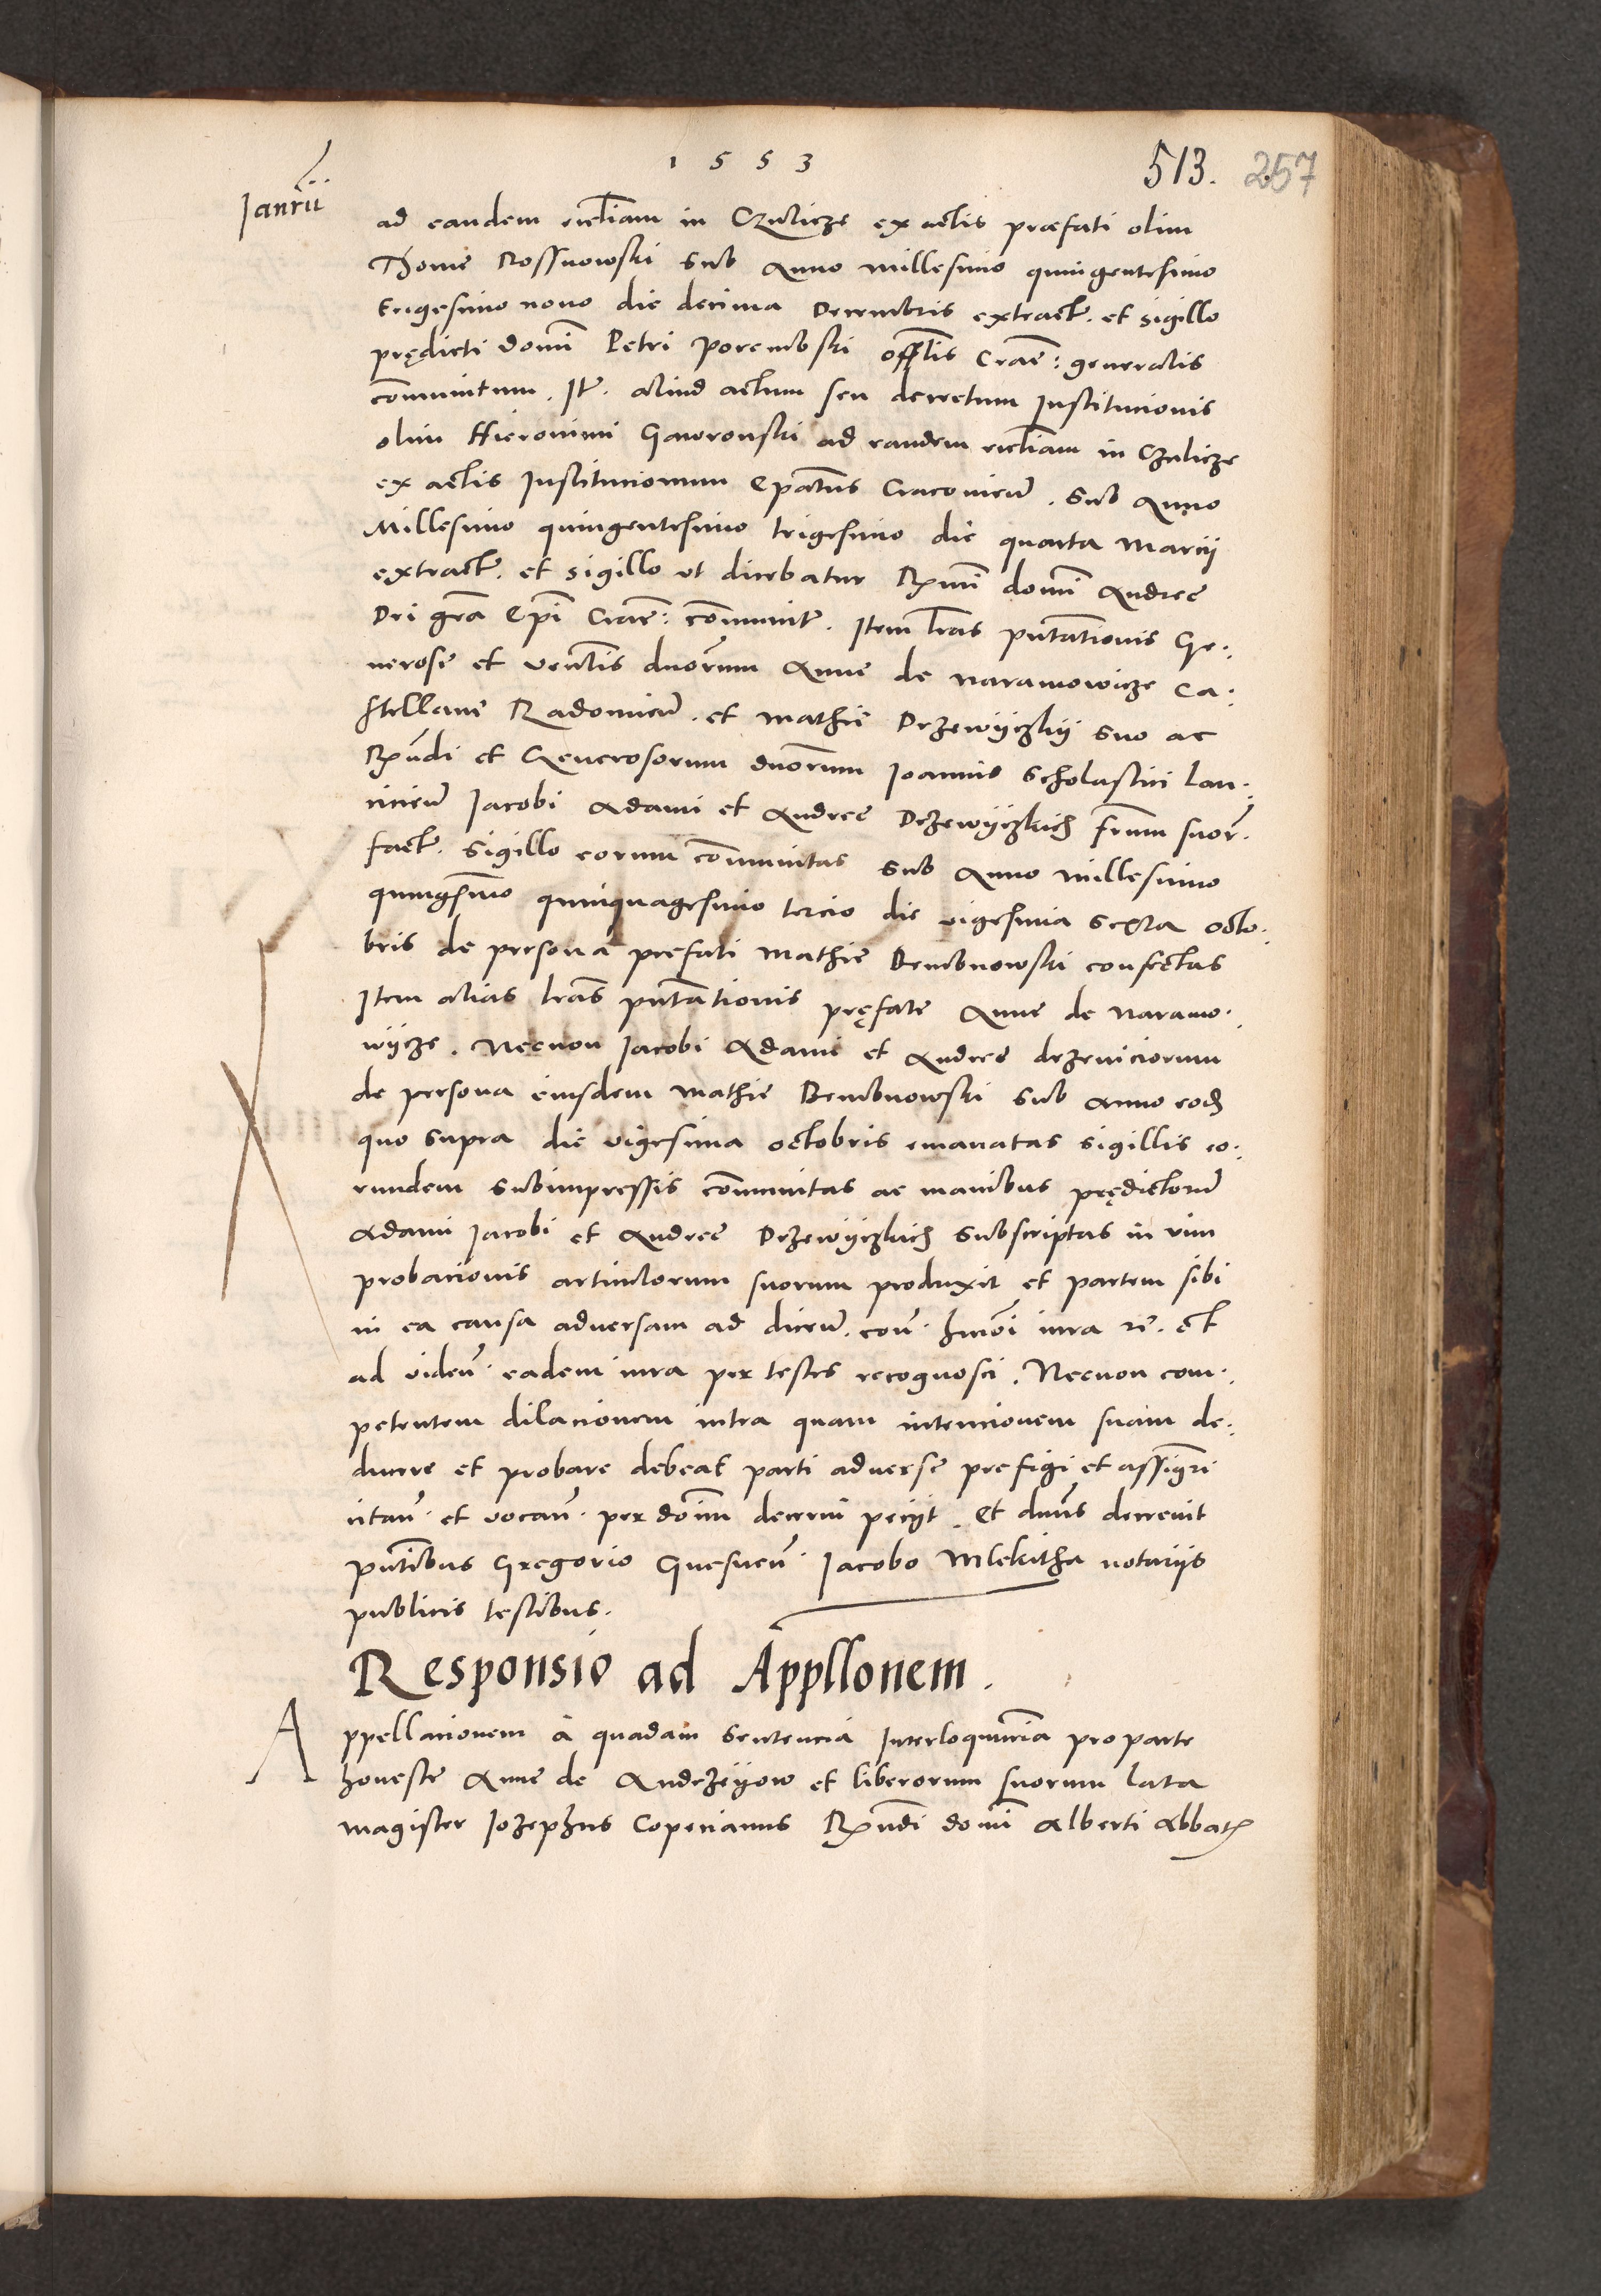 1 5 5 3
513. 257
Ianrii
ad eandem eccliam in Czulicze ex actis præfati olim
Thome Rossnowski sub Anno millesimo quingentesimo
trigesimo nono die decima Decembris extractum et sigillo
prędicti domi Petri Porembski offlis Cracn: generalis
comunitum. Itm aliud actum seu decretum Institucionis
olim Hieronimi Gaworonski ad eandem eccliam in Czulicze
ex actis Institucionum Epatus Cracovien. sub Anno
Millesimo quingentesimo trigesimo die quarta Marcij
extractum et sigillo ut dicebatur Rmi domi Andree
Dei gra Epi Cracn: comunitum. Item lras pntationis Ge:
nerose et venlis dnorum Anne de Naramowicze Ca:
stellane Radomien. et Mathie Drzewijczkij suo ac
Rndi et Generosorum dnorum Joannis Scholastici Lan:
cicien Jacobi Adami et Andree Drzewijczkich frum suor.
fact. sigillo eorum comunitas sub Anno millesimo
quingesimo quinquagesimo tercio die vigesima sexta octo:
bris de persona prefati Mathie Dembnowski confectas
Item alias lras pntationis pręfate Anne de Naramo:
wijcze. Necnon Jacobi Adami et Andree drzeviciorum
de persona eiusdem Mathie Dembnowski sub Anno eod
quo supra die vigesima octobris emanatas sigillis eo:
rundem subimpressis comunitas ac manibus prędictorum
Adami Jacobi et Andree Drzewijczkich subscriptas in vim
probacionis articulorum suorum produxit et partem sibi
in ea causa adversam ad dicen. con. hmoi iura et
ad viden. eadem iura per testes recognosci. Necnon com:
petentem dilacionem intra quam intencionem suam de:
ducere et probare debeat parti adverse prefigi et assignri
citan. et vocan. per domi decerni peciit. Et dnus decrevit
pntibus Gregorio Gnesnen. Jacobo Mlekitha notarijs
publicis testibus.
Responsio ad Appllonem.
Appellacionem à quadam sentencia Interloquutria pro parte
honeste Anne de Andrzeijow et liberorum suorum lata
magister Jozephus Copecianus Rndi domi Alberti Abbatis